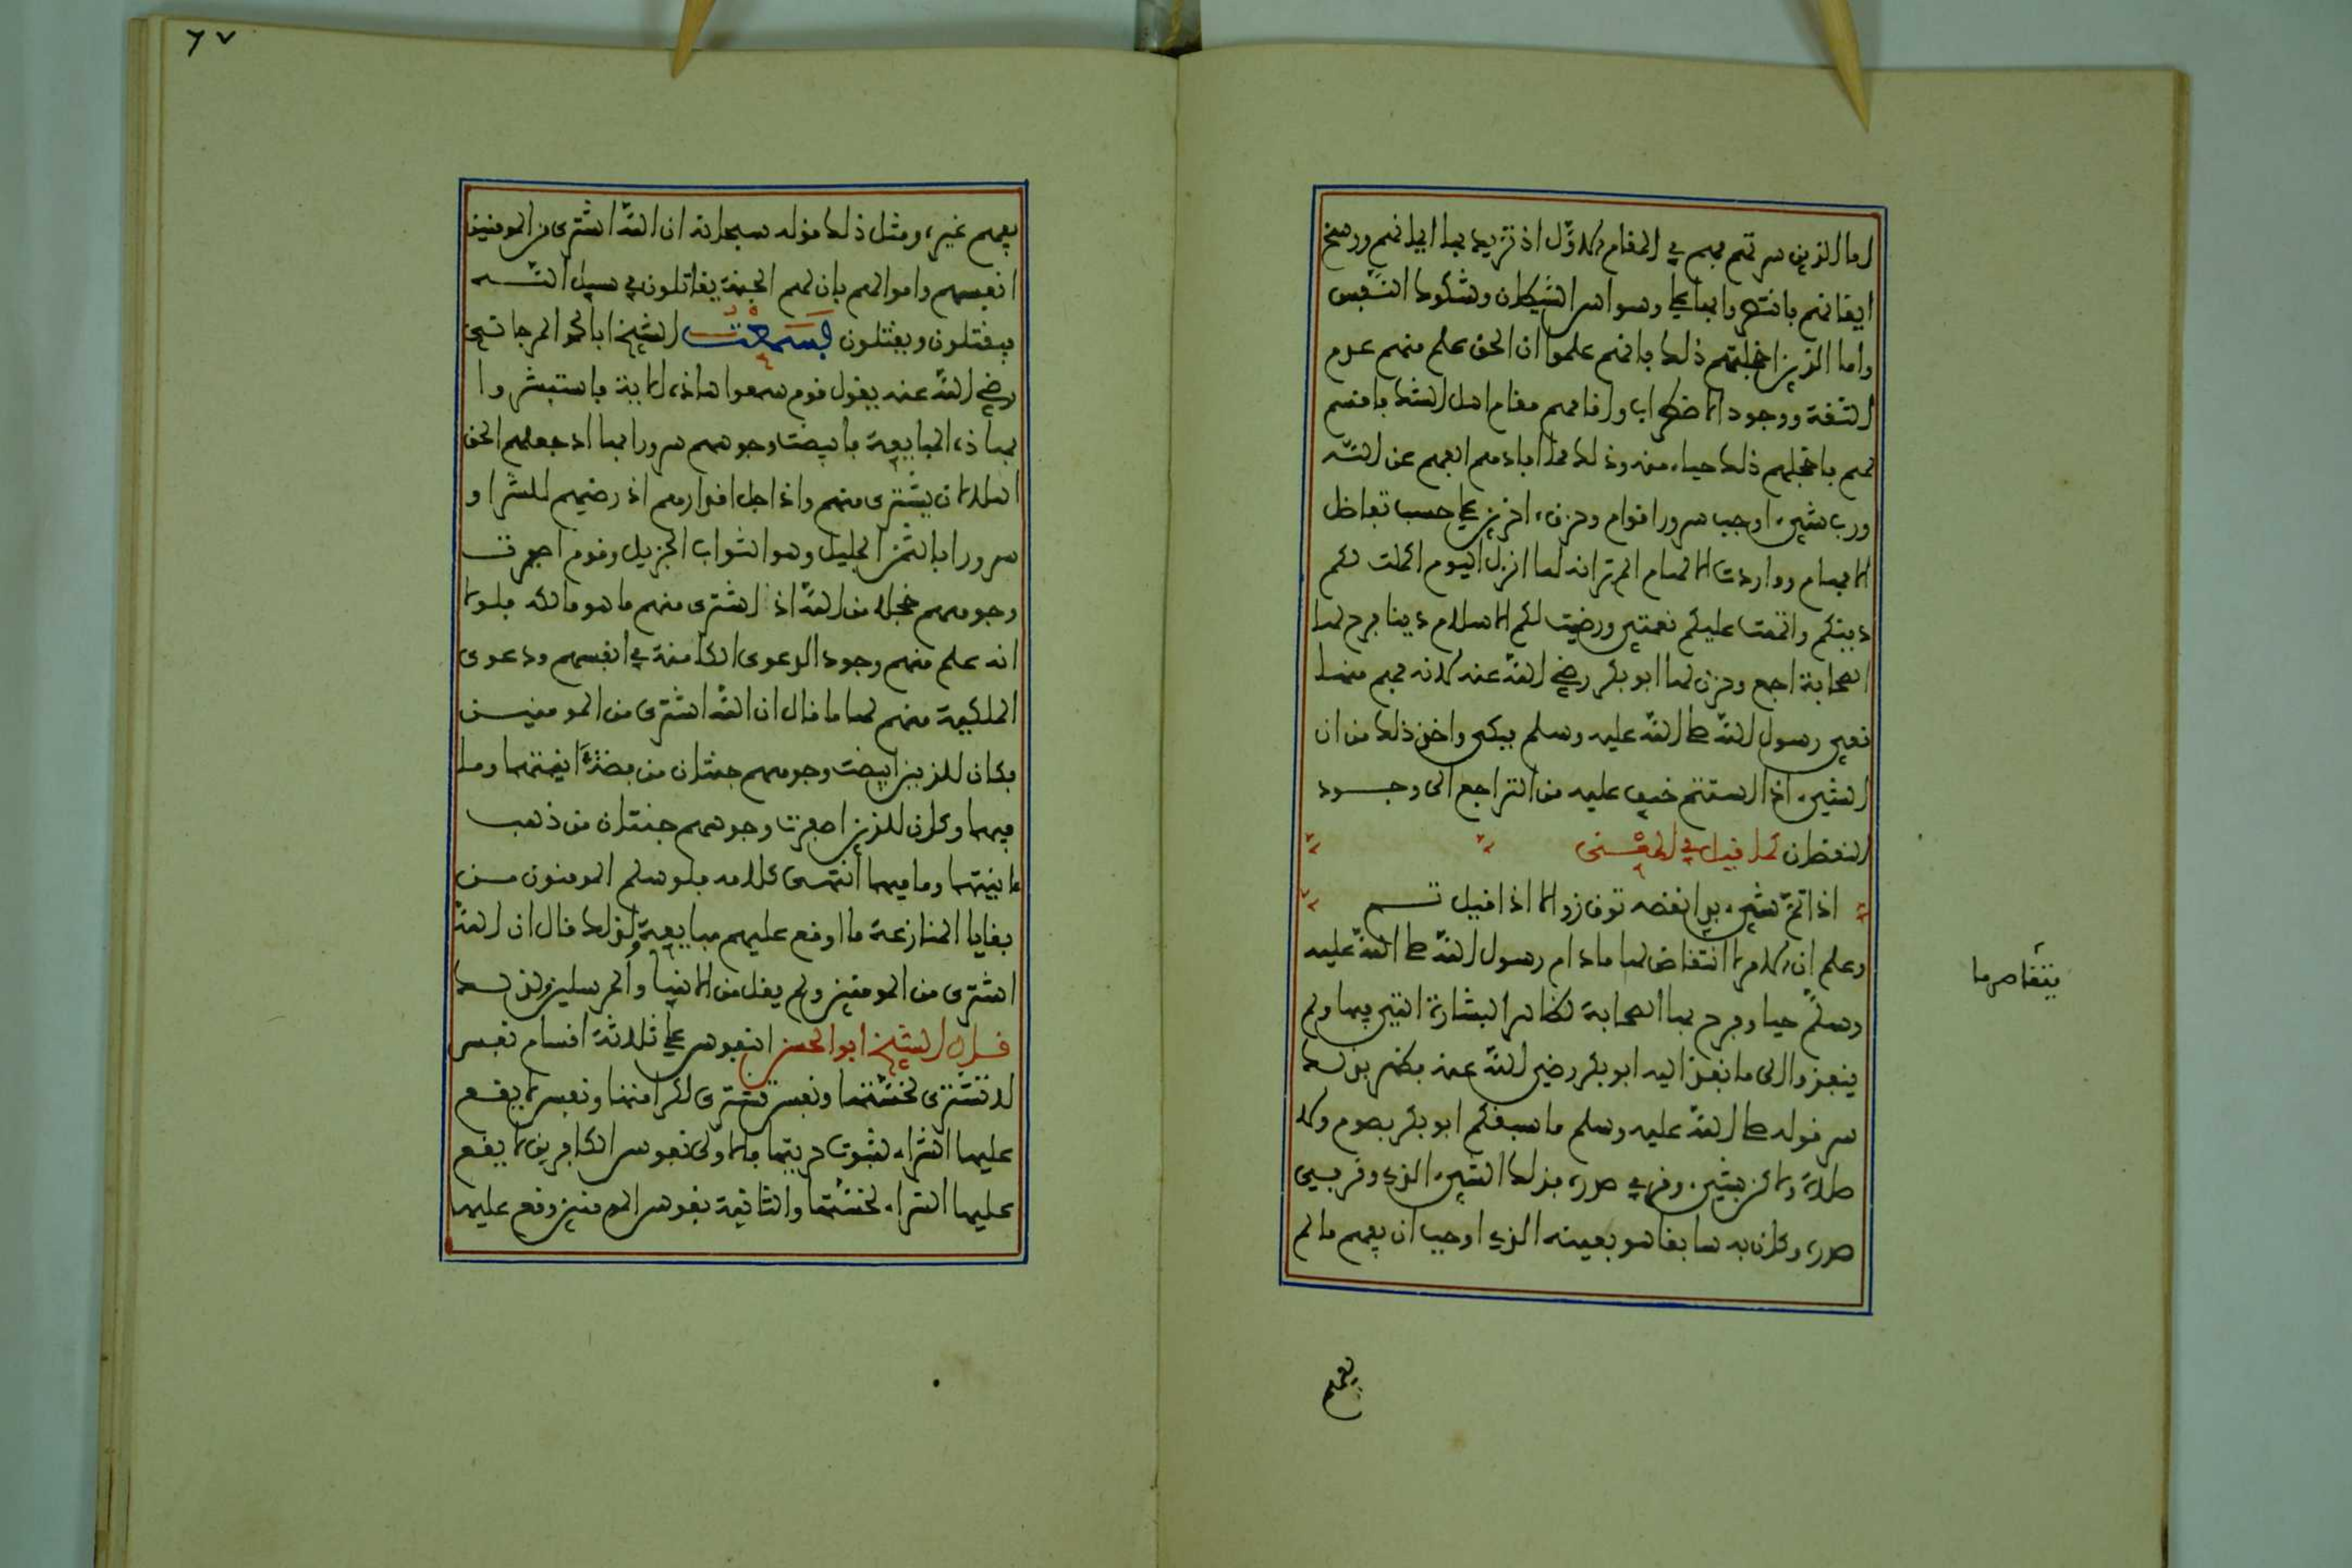 اما الذين سرتهم فهم في المقام الاول اذ تزيد بها ايمانهم ورسخ
ايقانهم بانتصروا بها على وسواس الشيطان وشكوك النفس
واما الذين اخجلتهم ذلك فانهم علموا ان الحق علم منهم عدم
الثقة ووجود الاضطراب واقامهم مقام اهل الشك فاقسم
لهم فاخجلهم ذلك حياء منه وذلك مما افادهم الفهم عن الله
ورب شيء اوجب سرور اقوام وحزن اخرين على حسب تفاضل
الافهام وواردات الالهام الم تر انه لما انزل اليوم اكملت لكم
دينكم واتممت عليكم نعمتي ورضيت لكم الاسلام دينا فرح لها
الصحابة اجمع وحزن لها ابو بكر رضي الله عنه لانه فهم منها
نعي رسول الله صلى الله عليه وسلم فبكى واخذ ذلك من ان
الشيء اذا استتم خيف عليه من التراجع الى وجود
النقصان كما قيل في المعنى
اذا تم شيء بدا نقصه توق زوالا اذا قيل تم
وعلم ان الامر لا انتقاض لها ما دام رسول الله صلى الله عليه
يتقاصر ما
وسلم حيا وفرح بها الصحابة لظاهر البشارة التي فيها ولم
ينفذوا الى ما نفذ اليه ابو بكر رضي الله عنه فظهر بذلك
سر قوله صلى الله عليه وسلم ما سبقكم ابو بكر بصوم ولا
صلاة ولاكن بشيء وقر في صدره فذلك الشيء الذي وقر في
صدره وكان به سابقا هو بعينه الذي اوجب ان يفهم ما لم
يفهم
٦٧
يفهم غيره ومثل ذلك قوله سبحانه ان الله اشترى من المومنين
انفسهم واموالهم بان لهم الجنة يقاتلون في سبيل الله
فيقتلون ويقتلون فسمعت الشيخ ابا محمد المرجاني
رضي الله عنه يقول قوم سمعوا هاذه الاية فاستبشروا
بهاذه المبايعة فابيضت وجوههم سرورا بها اذ جعلهم الحق
اهلا ان يشتري منهم واذ اجل اقدارهم اذ رضيهم للشراء و
سرورا بالثمن الجليل وهو الثواب الجزيل وقوم اصفرت
وجوههم خجلا من الله اذ اشترى منهم ما هو مالكه فلولا
انه علم منهم وجود الدعوى الكامنة في انفسهم ودعوى
الملكية منهم لها ما قال ان الله اشترى من المومنين
فكان للذين ابيضت وجوههم جنتان من فضة انيتهما وما
فيهما وكان للذين اصفرت وجوههم جنتان من ذهب
انيتهما وما فيهما انتهى كلامه فلو سلم المومنون من
بقايا المنازعة ما اوقع عليهم مبايعة ولذلك قال ان الله
اشترى من المومنين ولم يقل من الانبياء والمرسلين ولذلك
قال الشيخ ابو الحسن النفوس على ثلاثة اقسام نفس
لا تشترى لخستها ونفس تشترى لكرامتها ونفس لا يقع
عليها الشراء لثبوت حريتها فالاولى نفوس الكافرين لا يقع
عليها الشراء لخستها والثانية نفوس المومنين وقع عليها